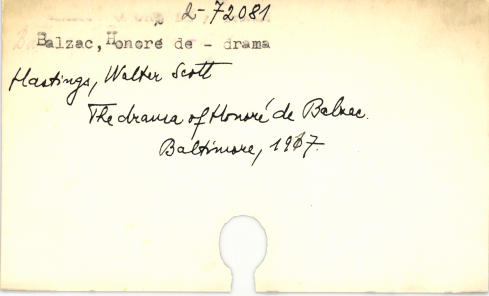 2-72081
Balzac, Honoré de - drama
Hastings, Walter Scott
The drama of Honoré de Balzac.
Baltimore, 1917.